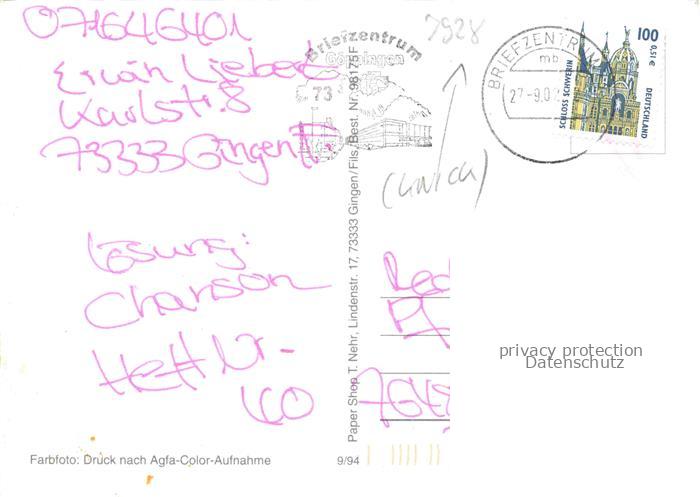 07164 6401
Erwin Liebert
Karlstr. 8
73333 Gingen
Lösung:
Chanson
Heft Nr.
40
Briefzentrum
Göppingen
73
7928
BRIEFZENTRUM
mb
27-9.0
100
0,51 €
SCHLOSS SCHWERIN
DEUTSCHLAND
Paper Shop T. Nehr, Lindenstr. 17, 73333 Gingen/Fils, Best. Nr. 98175F
privacy protection
Datenschutz
Farbfoto: Druck nach Agfa-Color-Aufnahme
9/94